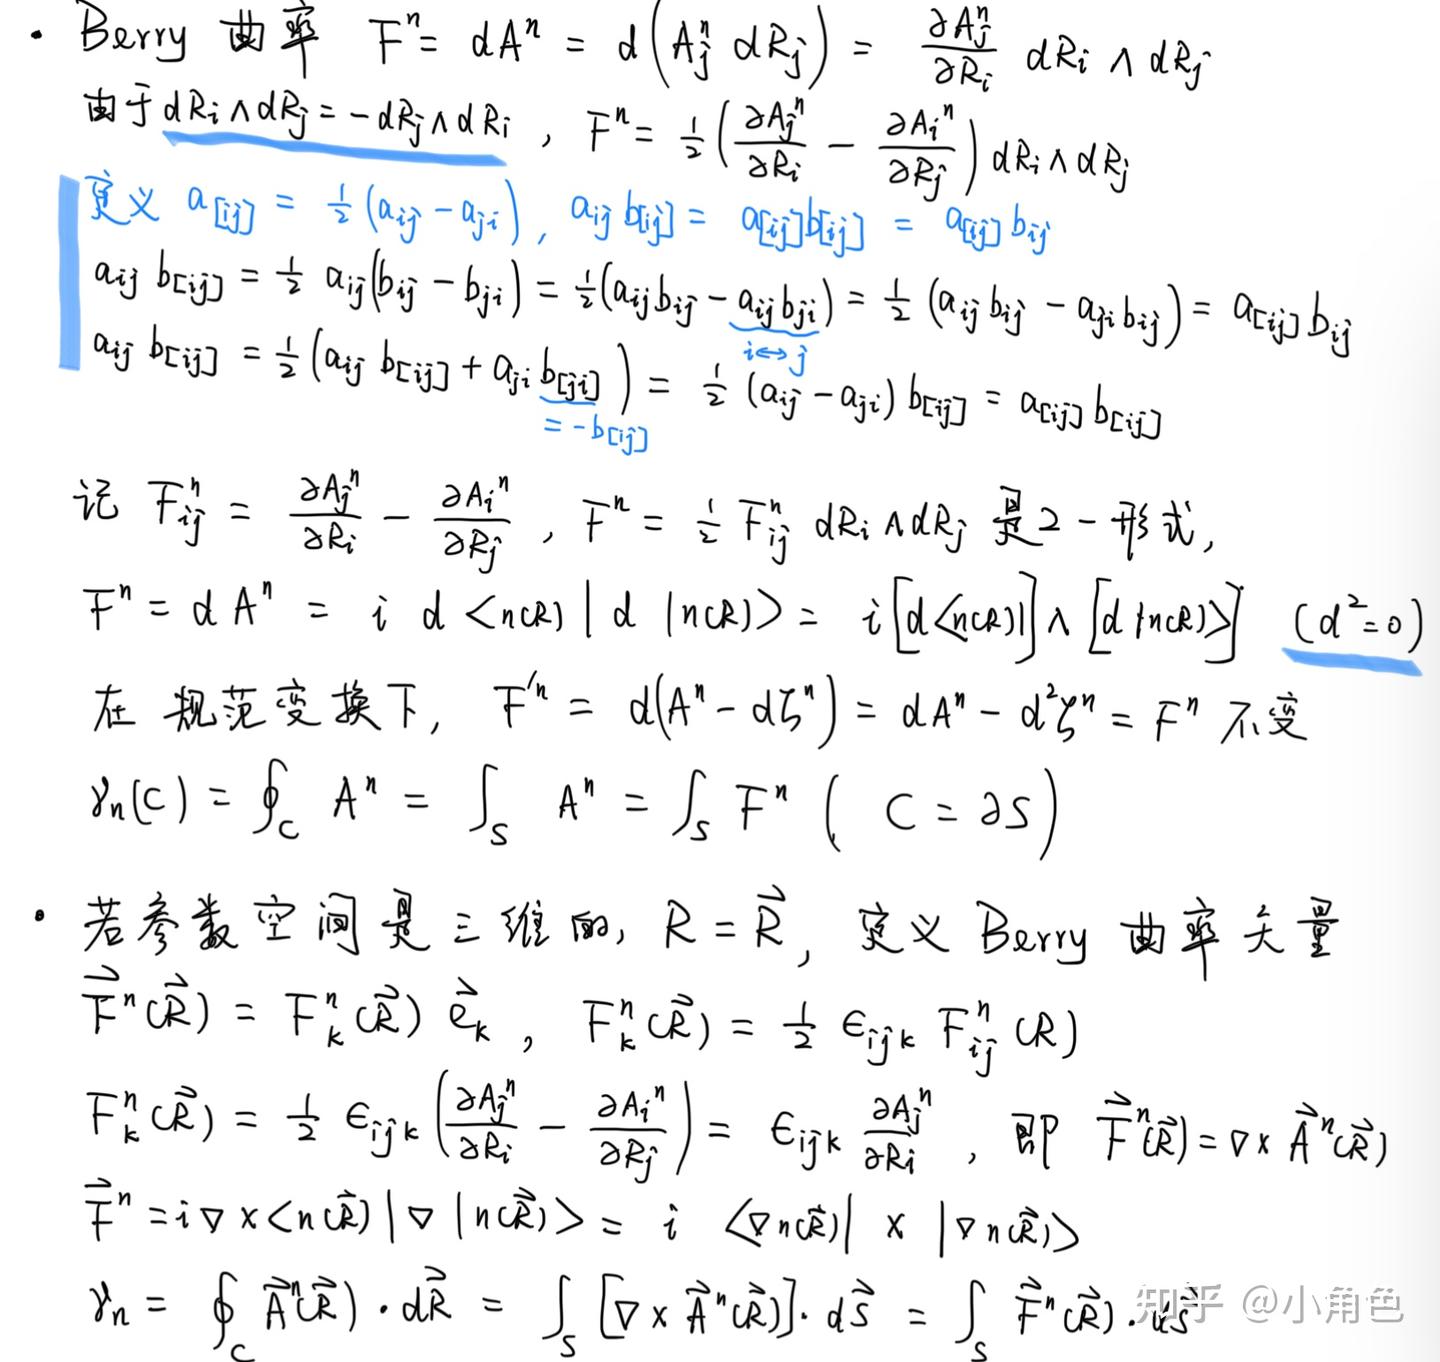 · Berry 曲率 Fⁿ = dAⁿ = d(Aⱼⁿ dRⱼ) = ∂Aⱼⁿ/∂Rᵢ dRᵢ ∧ dRⱼ
由于 dRᵢ∧dRⱼ = -dRⱼ∧dRᵢ , Fⁿ = ½(∂Aⱼⁿ/∂Rᵢ - ∂Aᵢⁿ/∂Rⱼ) dRᵢ∧dRⱼ
定义 a[ij] = ½(aij - aji), aij b[ij] = a[ij]b[ij] = a[ij] bij
aij b[ij] = ½ aij(bij - bji) = ½(aij bij - aij bji) = ½ (aij bij - aji bij) = a[ij] bij
i↔j
aij b[ij] = ½(aij b[ij] + aji b[ji]) = ½ (aij - aji) b[ij] = a[ij] b[ij]
= -b[ij]
记 Fijⁿ = ∂Aⱼⁿ/∂Rᵢ - ∂Aᵢⁿ/∂Rⱼ , Fⁿ = ½ Fijⁿ dRᵢ∧dRⱼ 是2-形式,
Fⁿ = dAⁿ = i d <n(R)|d|n(R)> = i[d<n(R)|]∧[d|n(R)>] (d²=0)
在规范变换下, F′ⁿ = d(Aⁿ - dζⁿ) = dAⁿ - d²ζⁿ = Fⁿ 不变
γn(C) = ∮_C Aⁿ = ∫_S Aⁿ = ∫_S Fⁿ ( C = ∂S)
· 若参数空间是三维的, R = R⃗, 定义 Berry 曲率矢量
F⃗ⁿ(R⃗) = Fₖⁿ(R⃗) e⃗ₖ , Fₖⁿ(R⃗) = ½ ϵijk Fijⁿ(R)
Fₖⁿ(R⃗) = ½ ϵijk (∂Aⱼⁿ/∂Rᵢ - ∂Aᵢⁿ/∂Rⱼ) = ϵijk ∂Aⱼⁿ/∂Rᵢ , 即 F⃗ⁿ(R⃗) = ∇× A⃗ⁿ(R⃗)
F⃗ⁿ = i∇×<n(R⃗)|∇|n(R⃗)> = i <∇n(R⃗)| × |∇n(R⃗)>
γn = ∮_C A⃗ⁿ(R⃗)·dR⃗ = ∫_S [∇× A⃗ⁿ(R⃗)]·dS⃗ = ∫_S F⃗ⁿ(R⃗)·dS⃗
知乎 @小角色